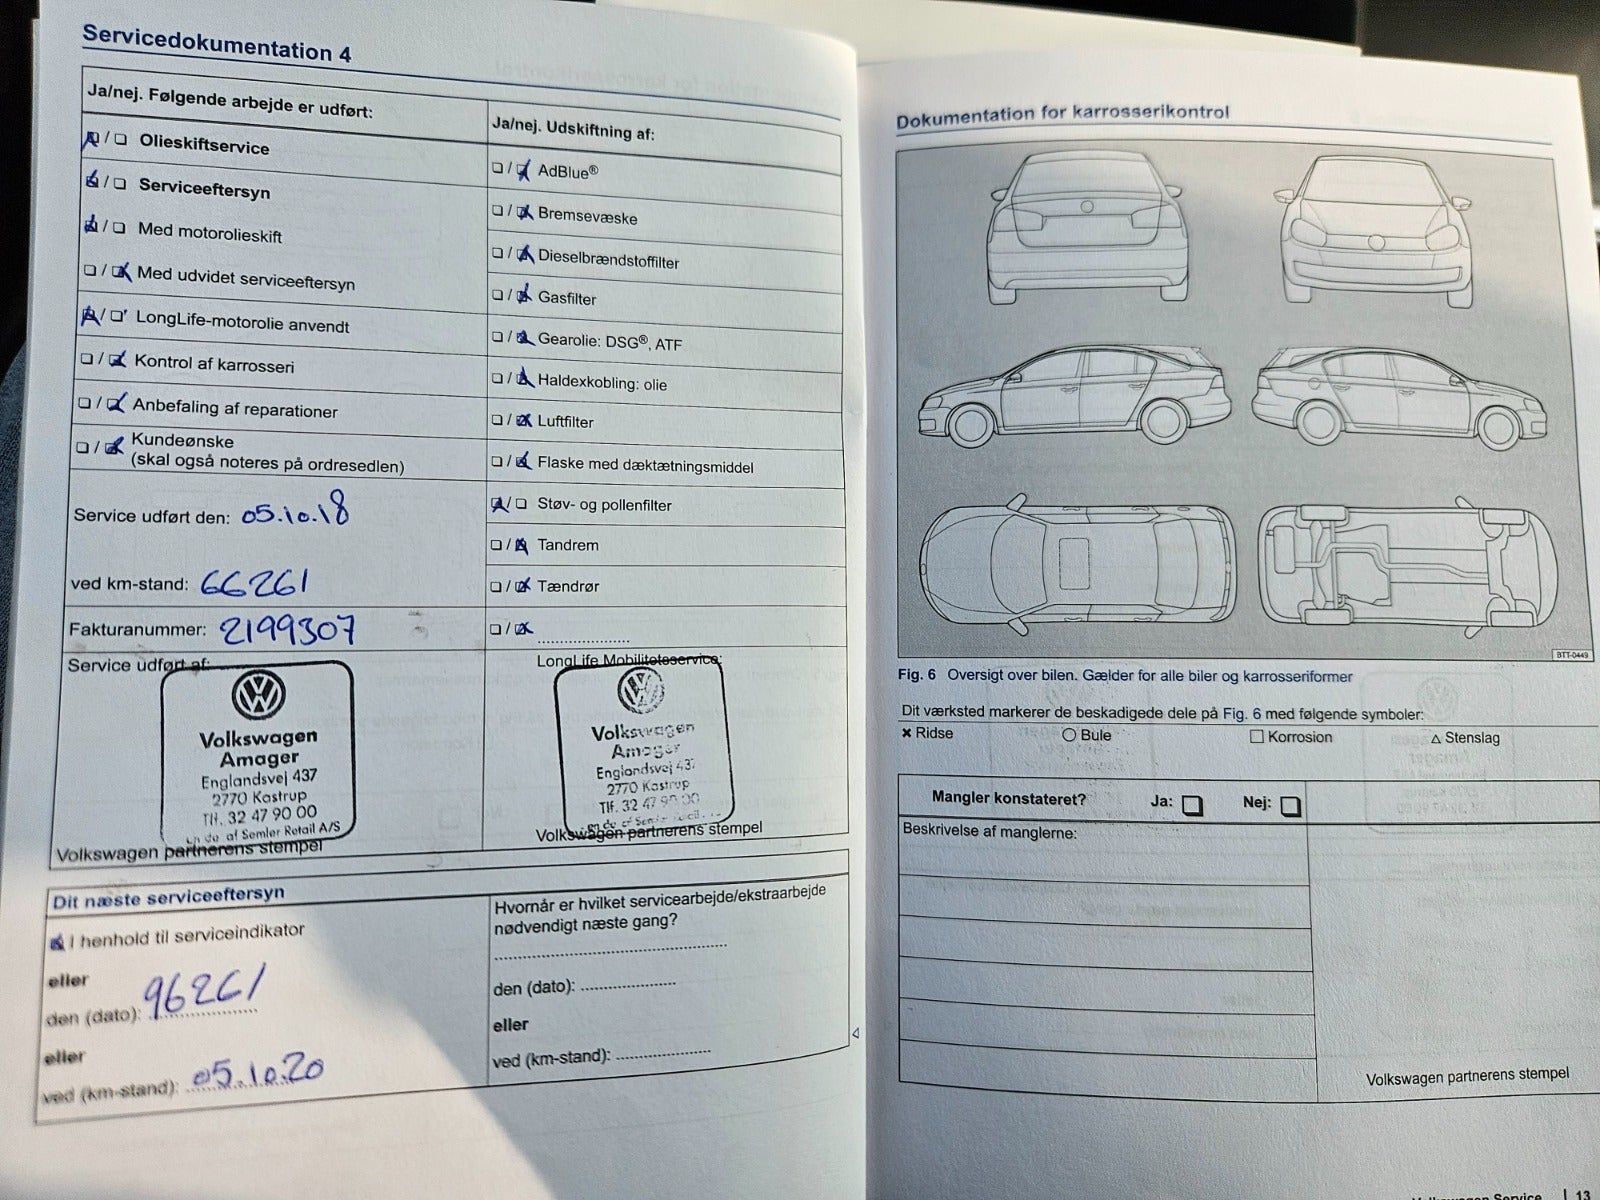 Servicedokumentation 4
Ja/nej. Følgende arbejde er udført:
Olieskiftservice
Serviceeftersyn
Med motorolieskift
Med udvidet serviceeftersyn
LongLife-motorolie anvendt
Kontrol af karrosseri
Anbefaling af reparationer
Kundeønske
(skal også noteres på ordresedlen)
Service udført den: 05.10.18
ved km-stand: 66261
Fakturanummer: 2199307
Service udført af:
Volkswagen
Amager
Englandsvej 437
2770 Kastrup
Tlf. 32 47 90 00
af Semler Retail A/S
Volkswagen partnerens stempel
Ja/nej. Udskiftning af:
AdBlue®
Bremsevæske
Dieselbrændstoffilter
Gasfilter
Gearolie: DSG®, ATF
Haldexkobling: olie
Luftfilter
Flaske med dæktætningsmiddel
Støv- og pollenfilter
Tandrem
Tændrør
LongLife Mobilitetsservice:
Volkswagen
Amager
Englandsvej 437
2770 Kastrup
Tlf. 32 47 90 00
Volkswagen partnerens stempel
Dit næste serviceeftersyn
I henhold til serviceindikator
eller
den (dato): 96261
eller
ved (km-stand): 05.10.20
Hvornår er hvilket servicearbejde/ekstraarbejde
nødvendigt næste gang?
den (dato):
eller
ved (km-stand):
Dokumentation for karrosserikontrol
BTT-0449
Fig. 6 Oversigt over bilen. Gælder for alle biler og karrosseriformer
Dit værksted markerer de beskadigede dele på Fig. 6 med følgende symboler:
Ridse Bule Korrosion Stenslag
Mangler konstateret? Ja: Nej:
Beskrivelse af manglerne:
Volkswagen partnerens stempel
Service | 13